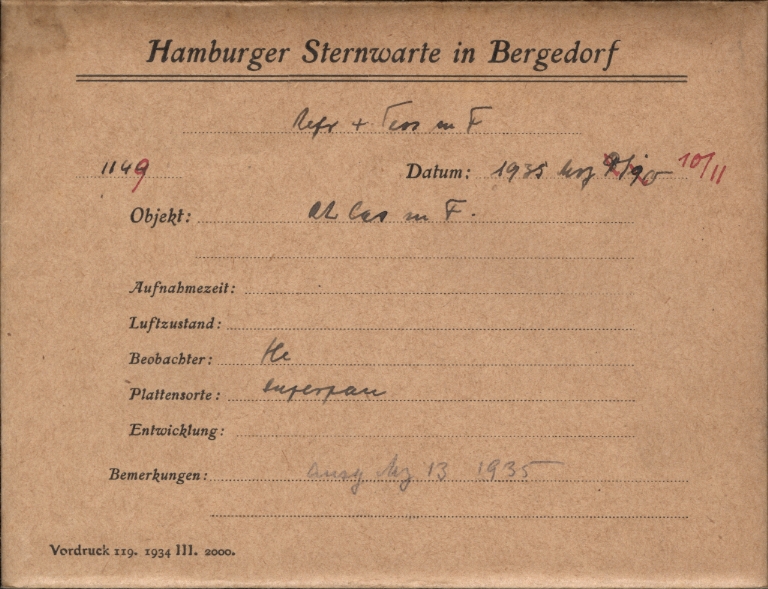 Hamburger Sternwarte in Bergedorf
Refr + m F
1149 Datum: 1935 10/11
Objekt: Cas m F.
Aufnahmezeit:
Luftzustand:
Beobachter: He
Plattensorte: Superpan
Entwicklung:
Bemerkungen: 13 1935
Vordruck 119. 1934 III. 2000.